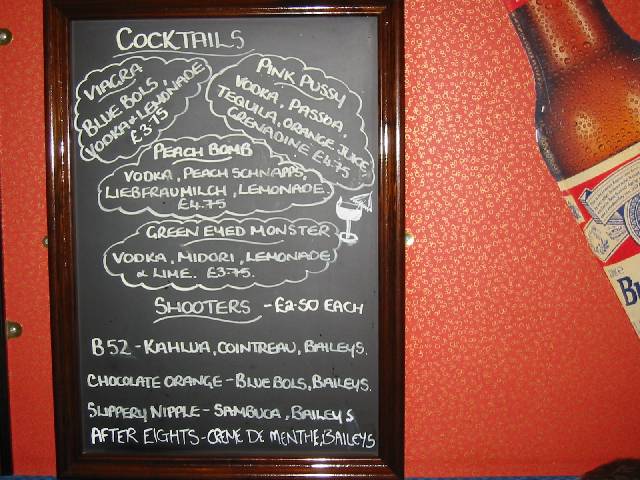 COCKTAILS
VIAGRA
BLUE BOLS,
VODKA + LEMONADE
£3.75
PINK PUSSY
VODKA, PASSOA,
TEQUILA, ORANGE JUICE
GRENADINE £4.75
PEACH BOMB
VODKA, PEACH SCHNAPPS,
LIEBFRAUMILCH, LEMONADE.
£4.75
GREEN EYED MONSTER
VODKA, MIDORI, LEMONADE
& LIME. £3.75.
SHOOTERS - £2.50 EACH
B52 - KAHLUA, COINTREAU, BAILEYS.
CHOCOLATE ORANGE - BLUE BOLS, BAILEYS.
SLIPPERY NIPPLE - SAMBUCA, BAILEYS
AFTER EIGHTS - CREME DE MENTHE, BAILEYS